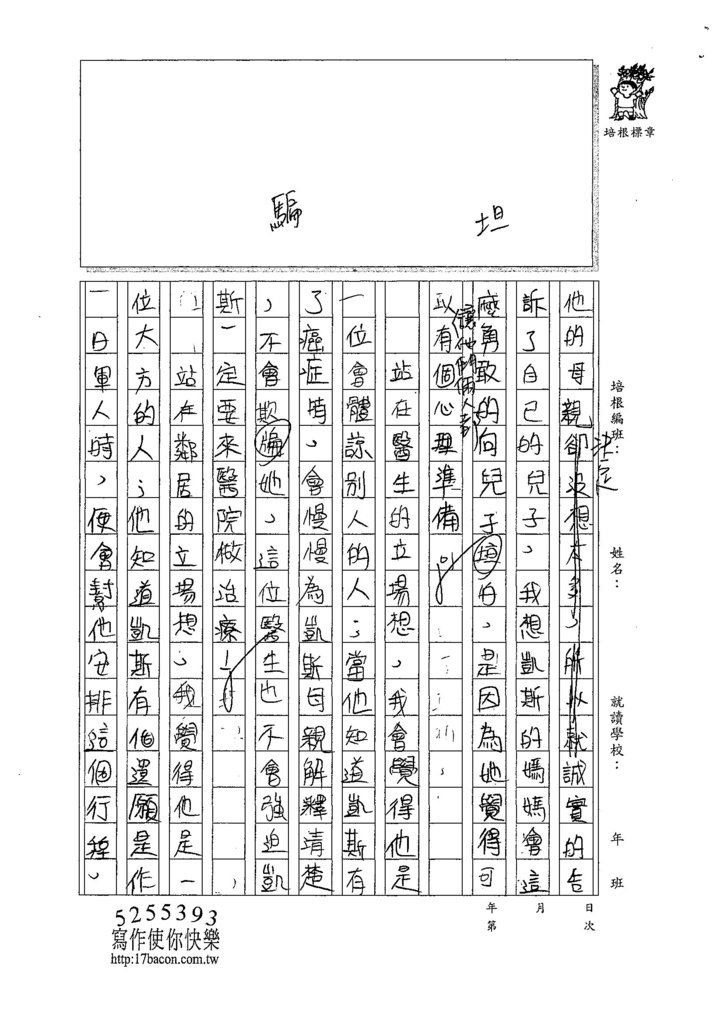 培根標章
坦
騙
培根編班：
姓名：
就讀學校：
年
班
他的母親卻沒想太多，所以就誠實的告
決定
訴了自已的兒子，我想凱斯的媽媽會這
麼勇敢的向兒子坦白，是因為她覺得可
讓他們倆人都
以有個心理準備。
站在醫生的立場想，我會覺得他是
一位會體諒別人的人；當他知道凱斯有
了癌症時，會慢慢為凱斯母親解釋清楚
，不會欺騙她，這位醫生也不會強迫凱
斯一定要來醫院做治療。
站在鄰居的立場想，我覺得他是一
位大方的人；他知道凱斯有個遺願是作
一日軍人時，便會幫他安排這個行程，
年 月 日
第 次
5255393
寫作使你快樂
http:17bacon.com.tw